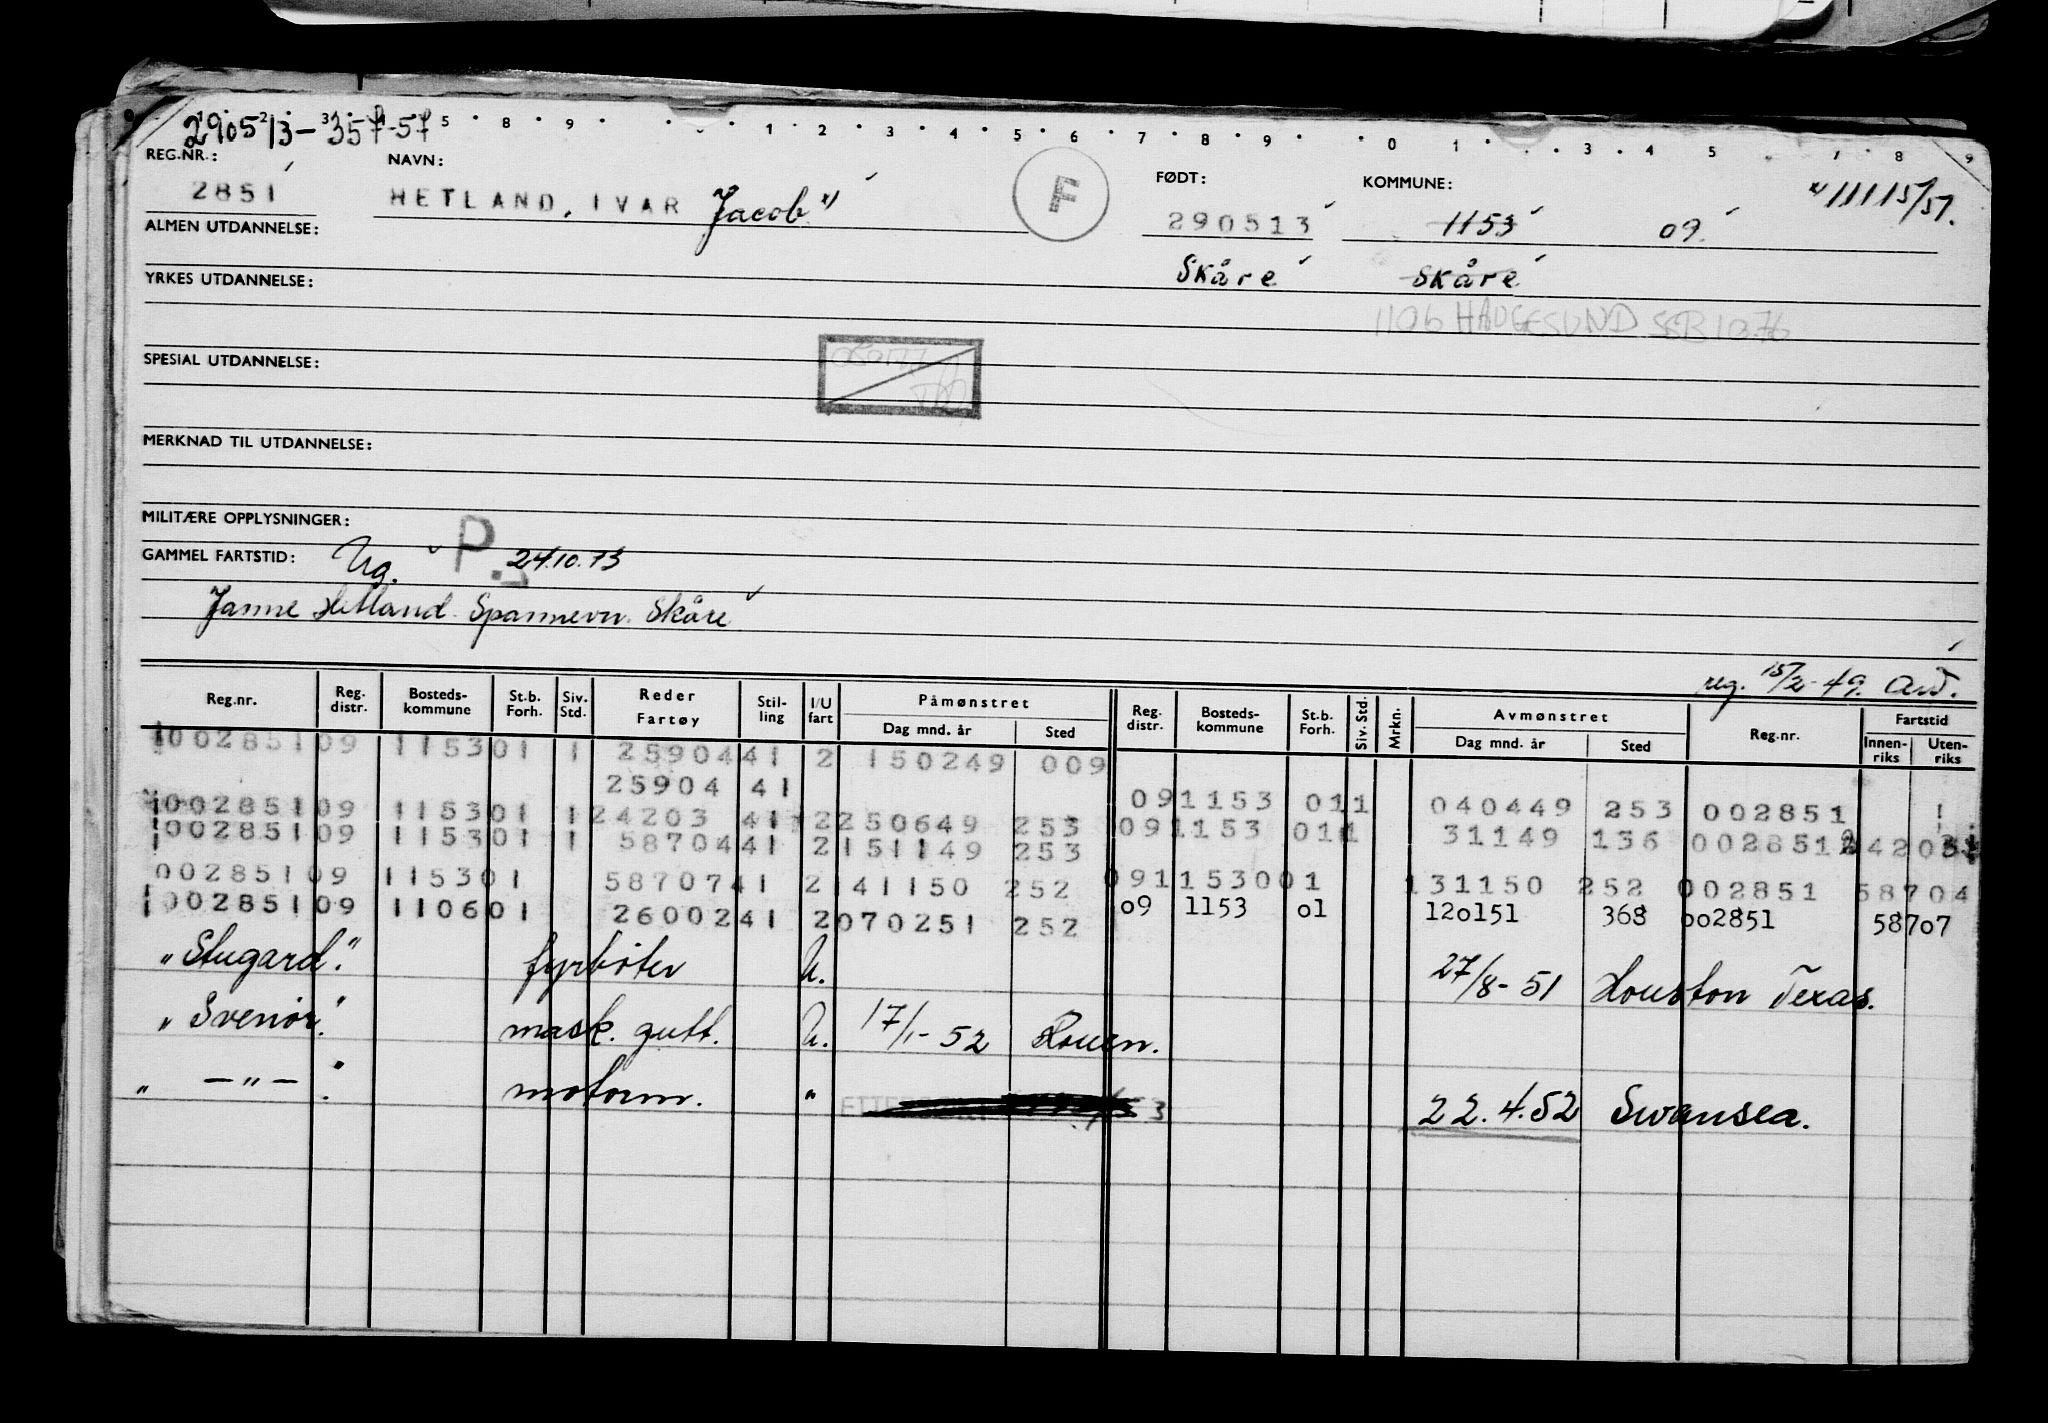 290513-35757
REG.NR.: NAVN: FØDT: KOMMUNE:
2851 HETLAND, IVAR Jacob x) F 290513 1153 09 x) 11115/57.
ALMEN UTDANNELSE:
Skåre Skåre
YRKES UTDANNELSE:
1106 HAUGESUND SSB 1076
SPESIAL UTDANNELSE:
MERKNAD TIL UTDANNELSE:
MILITÆRE OPPLYSNINGER:
GAMMEL FARTSTID: Ug. P. 24.10.73
Janne Hetland Spannevn. Skåre
reg. 15/2-49.
Reg.nr. Reg. distr. Bosteds-kommune St.b. Forh. Siv. Std. Reder Fartøy Stil-ling I/U fart Påmønstret Dag mnd. år Sted Reg. distr. Bosteds-kommune St.b. Forh. Siv. Std. Mrkn. Avmønstret Dag mnd. år Sted Reg.nr. Fartstid Innen-riks Uten-riks
002851 09 1153 01 1 25904 41 2 150249 009
25904 41 09 1153 01 1 040449 253 002851
002851 09 1153 01 1 24203 41 2 250649 253 09 1153 01 1 31149 136 002851 24203
002851 09 1153 01 1 58704 41 2 151149 253
002851 09 1153 01 58707 41 2 141150 252 09 1153 001 131150 252 002851 58704
002851 09 1106 01 26002 41 2 070251 252 09 1153 01 120151 368 002851 58707
"Stugard." fyrbøter U. 27/8-51 Houston Texas.
"Svenør." mask. gutt. U. 17/1-52 Rouen.
" —"— ". motorm. " 22.4.52 Swansea.